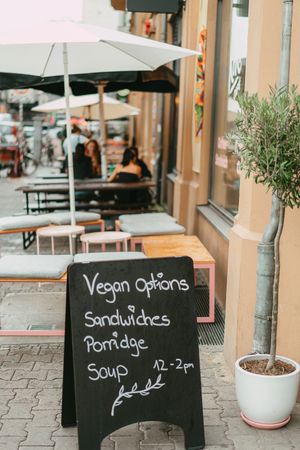 Vegan Options
Sandwiches
Porridge
Soup 12-2pm